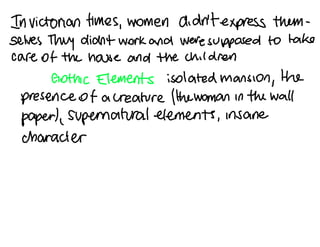 In victorian times, women didn't express them-
selves They didn't work and were supposed to take
care of the house and the children
Gothic Elements isolated mansion, the
presence of a creature (the woman in the wall
paper), supernatural elements, insane
character